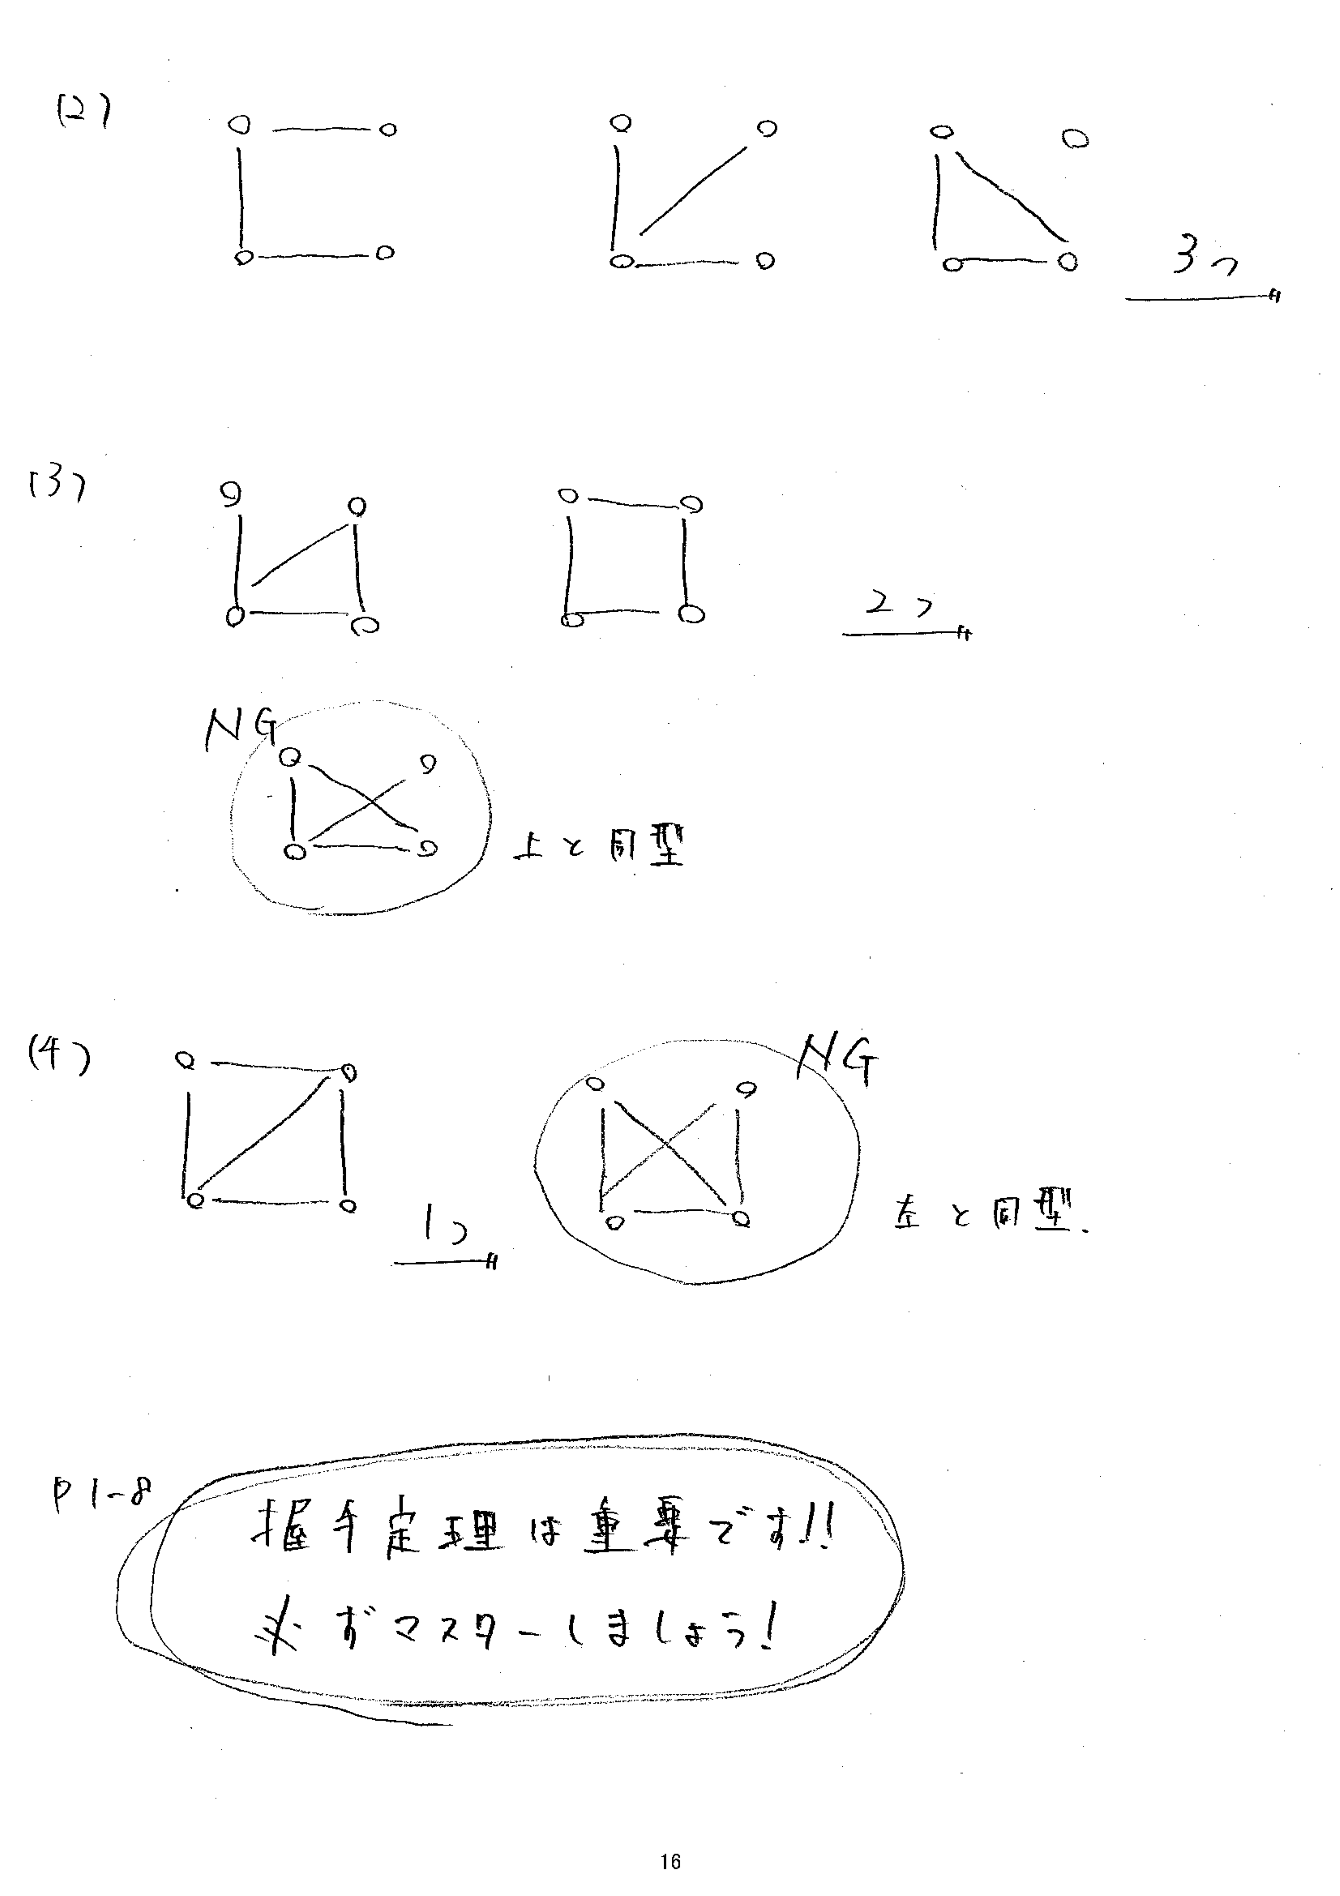 (2)
3つ
(3)
2つ
NG
上と同型
(4)
NG
1つ
左と同型.
P1-8
握手定理は重要です!!
必ずマスターしましょう!
16